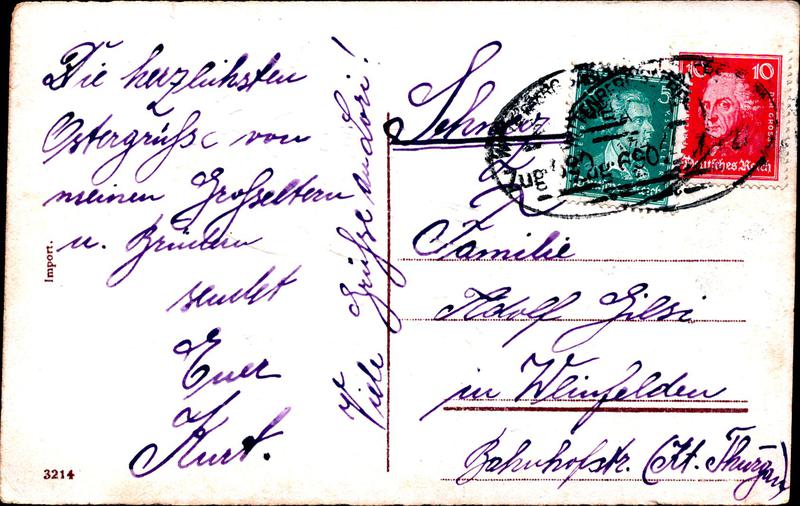 Die herzlichsten
Ostergrüsse von
meinen Grosseltern
u. Brüdern
sendet
Euer
Kurt.
Viele Grüsse an Lori!
Import.
3214
Schweiz
5
10 10
Deutsches Reich
Zug
Familie
Adolf Gilsi
in Weinfelden
Bahnhofstr. (Kt. Thurgau)